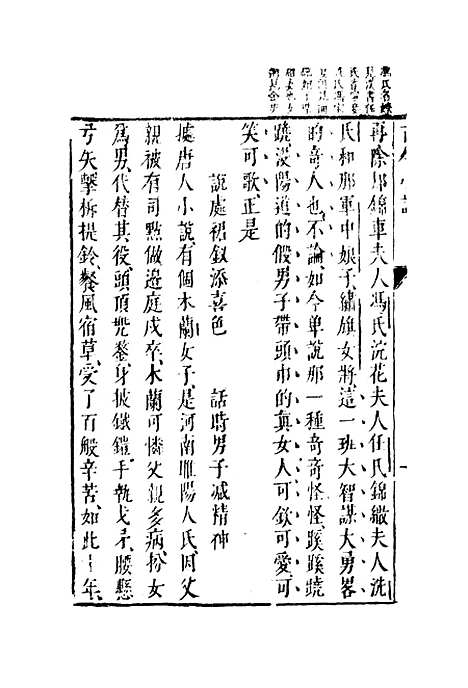 再除却錦車夫人馮氏浣花夫人任氏錦繖夫人洗
氏和那軍中娘子繡旗女將這一班大智謀大勇畧
的奇人也不論如今單說那一種奇奇怪怪蹊蹊蹺
蹺沒陽道的假男子帶頭巾的眞女人可欽可愛可
笑可歌正是
說處裙釵添喜色　話時男子減精神
據唐人小說有個木蘭女子是河南睢陽人氏因父
親被有司㸃做邉庭戍卒木蘭可憐父親多病扮女
爲男代替其役頭頂兜鍪身披鐵鎧手執戈矛腰懸
弓矢擊柝提鈴餐風宿草受了百般辛苦如此十年